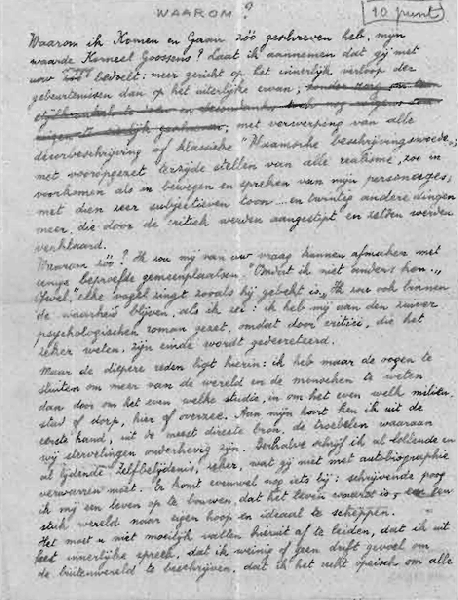 WAAROM?
10 punt
Waarom ik Komen en Gaan zóó geschreven heb, mijn
waarde Korneel Goossens? Laat ik aannemen dat gij met
uw zóó bedoelt: meer gericht op het innerlijk verloop der
gebeurtenissen dan op het uiterlijke ervan;
met verwerping van alle
decorbeschrijving of klassieke "Vlaamsche beschrijvingswoede",
met vooropgezet terzijde stellen van alle realisme, zoo in
voorkomen als in bewegen en spreken van mijn personages;
met dien zeer subjectieven toon... en twintig andere dingen
meer, die door de critiek werden aangestipt en zelden werden
verklaard.
Waarom zóó? Ik zou mij van uw vraag kunnen afmaken met
eenige beproefde gemeenplaatsen "Omdat ik niet anders kon",
"elke vogel zingt zooals hij gebekt is". Ik zou ook binnen
de waarheid blijven, als ik zei: ik heb mij aan den zuiver
psychologischen roman gezet, omdat door critici, die het
zeker weten, zijn einde wordt gedecreteerd.
Maar de diepere reden ligt hierin: ik heb maar de oogen te
sluiten om meer van de wereld en de menschen te weten
dan door om het even welke studie, in om het even welk milieu,
stad of dorp, hier of overzee. Aan mijn hart ken ik uit de
eerste hand, uit de meest directe bron, de troebelen waaraan
wij stervelingen onderhevig zijn. Derhalve schrijf ik al dollende en
al lijdende. Zelfbelijdenis, zeker, wat gij niet met autobiographie
verwarren moet. Er komt evenwel nog iets bij: schrijvende poog
ik mij een leven op te bouwen, dat het leven waard is, een
stuk wereld naar eigen hoop en ideaal te scheppen.
Het moet u niet moeilijk vallen hieruit af te leiden, dat ik uit
feet innerlijke spreek, dat ik weinig of geen drift gevoel om
de buitenwereld te beschrijven, dat ik het recht opeisch om alle